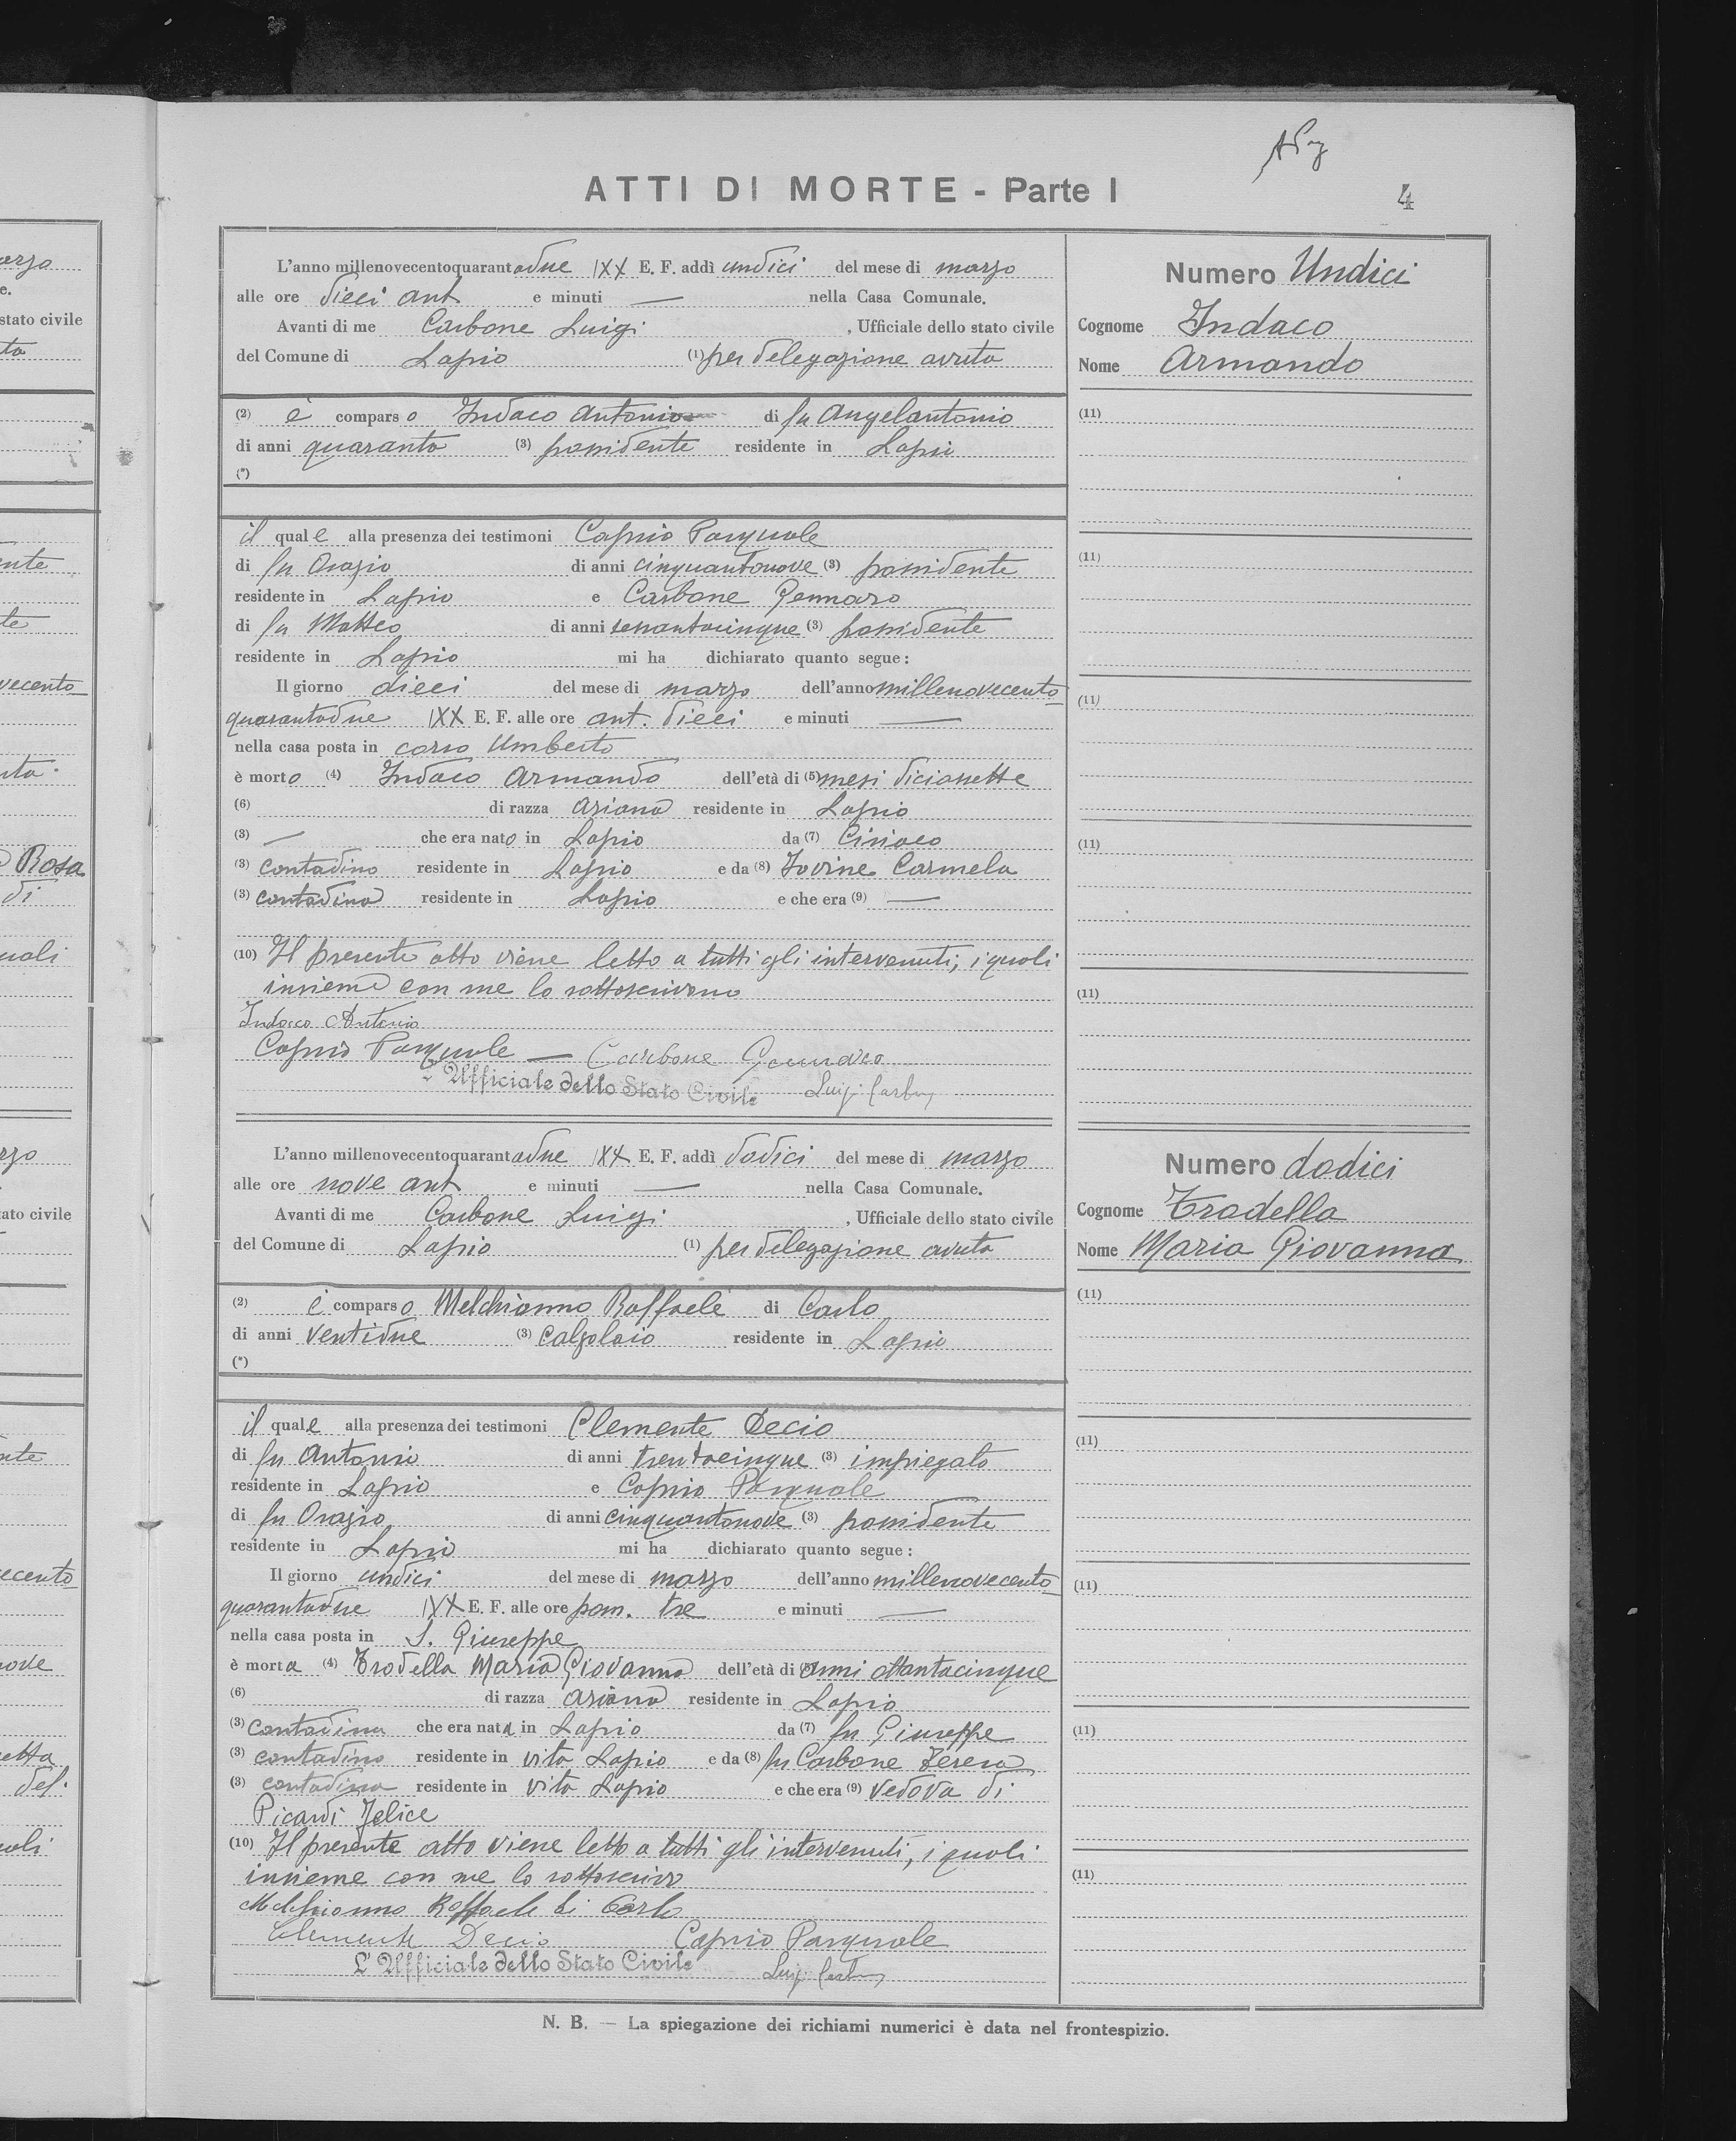 ATTI DI MORTE - Parte I
4
L'anno millenovecentoquarantadue IXX E. F. addì undici del mese di marzo
alle ore dieci ant e minuti — nella Casa Comunale.
Avanti di me Carbone Luigi, Ufficiale dello stato civile
del Comune di Lapio (1) per delegazione avuta
(2) è comparso Indaco Antonio di fu Angelantonio
di anni quaranta (3) possidente residente in Lapio
(*)
il quale alla presenza dei testimoni Caprio Pasquale
di fu Orazio di anni cinquantanove (3) possidente
residente in Lapio e Carbone Gennaro
di fu Matteo di anni sessantacinque (3) possidente
residente in Lapio mi ha dichiarato quanto segue:
Il giorno dieci del mese di marzo dell'anno millenovecento
quarantadue IXX E. F. alle ore ant. dieci e minuti —
nella casa posta in corso Umberto
è morto (4) Indaco Armando dell'età di (5) mesi diciassette
(6) di razza ariana residente in Lapio
(3) — che era nato in Lapio da (7) Ciriaco
(3) contadino residente in Lapio e da (8) Iovine Carmela
(3) contadina residente in Lapio e che era (9) —
(10) Il presente atto viene letto a tutti gli intervenuti, i quali
insieme con me lo sottoscrivono
Indaco Antonio
Caprio Pasquale — Carbone Gennaro
L'Ufficiale dello Stato Civile Luigi Carbone
Numero Undici
Cognome Indaco
Nome Armando
(11)
(11)
(11)
(11)
(11)
L'anno millenovecentoquarantadue IXX E. F. addì dodici del mese di marzo
alle ore nove ant e minuti — nella Casa Comunale.
Avanti di me Carbone Luigi, Ufficiale dello stato civile
del Comune di Lapio (1) per delegazione avuta
(2) è comparso Melchionno Raffaele di Carlo
di anni ventidue (3) calzolaio residente in Lapio
(*)
il quale alla presenza dei testimoni Clemente Decio
di fu Antonio di anni trentacinque (3) impiegato
residente in Lapio e Caprio Pasquale
di fu Orazio di anni cinquantanove (3) possidente
residente in Lapio mi ha dichiarato quanto segue:
Il giorno undici del mese di marzo dell'anno millenovecento
quarantadue IXX E. F. alle ore pom. tre e minuti —
nella casa posta in S. Giuseppe
è morta (4) Tradella Maria Giovanna dell'età di anni ottantacinque
(6) di razza ariana residente in Lapio
(3) contadina che era nata in Lapio da (7) fu Giuseppe
(3) contadino residente in vita Lapio e da (8) fu Carbone Teresa
(3) contadina residente in vita Lapio e che era (9) vedova di
Picardi Felice
(10) Il presente atto viene letto a tutti gli intervenuti, i quali
insieme con me lo sottoscrivono
Melchionno Raffaele di Carlo
Clemente Decio Caprio Pasquale
L'Ufficiale dello Stato Civile Luigi Carbone
Numero dodici
Cognome Tradella
Nome Maria Giovanna
(11)
(11)
(11)
(11)
(11)
N. B. — La spiegazione dei richiami numerici è data nel frontespizio.